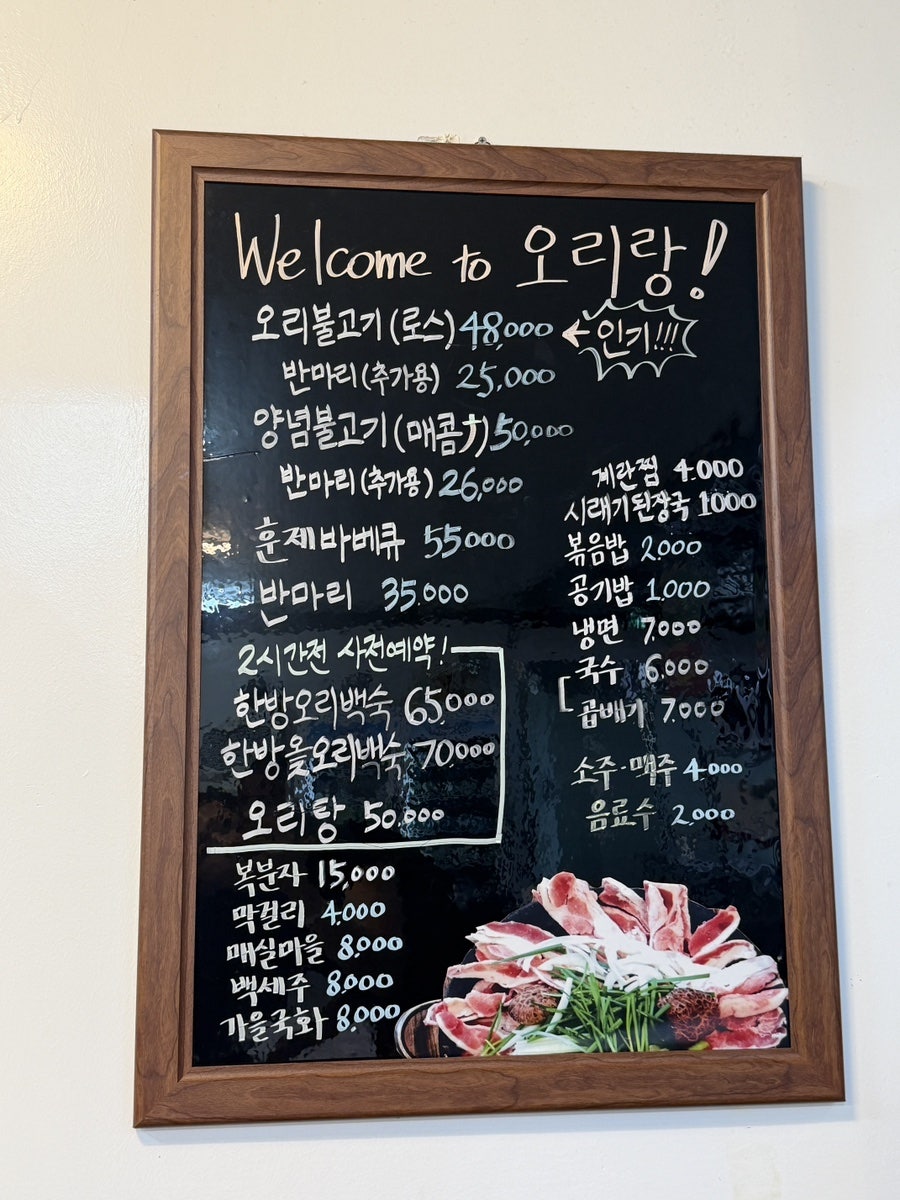 Welcome to 오리랑!
오리불고기(로스) 48,000 ← 인기!!!
반마리(추가용) 25,000
양념불고기(매콤↑) 50,000
반마리(추가용) 26,000
훈제바베큐 55000
반마리 35.000
2시간전 사전예약!
한방오리백숙 65,000
한방옻오리백숙 70,000
오리탕 50.000
복분자 15,000
막걸리 4.000
매실마을 8.000
백세주 8.000
가을국화 8.000
계란찜 4.000
시래기된장국 1000
볶음밥 2.000
공기밥 1,000
냉면 7.000
국수 6,000
곱배기 7.000
소주·맥주 4.000
음료수 2,000